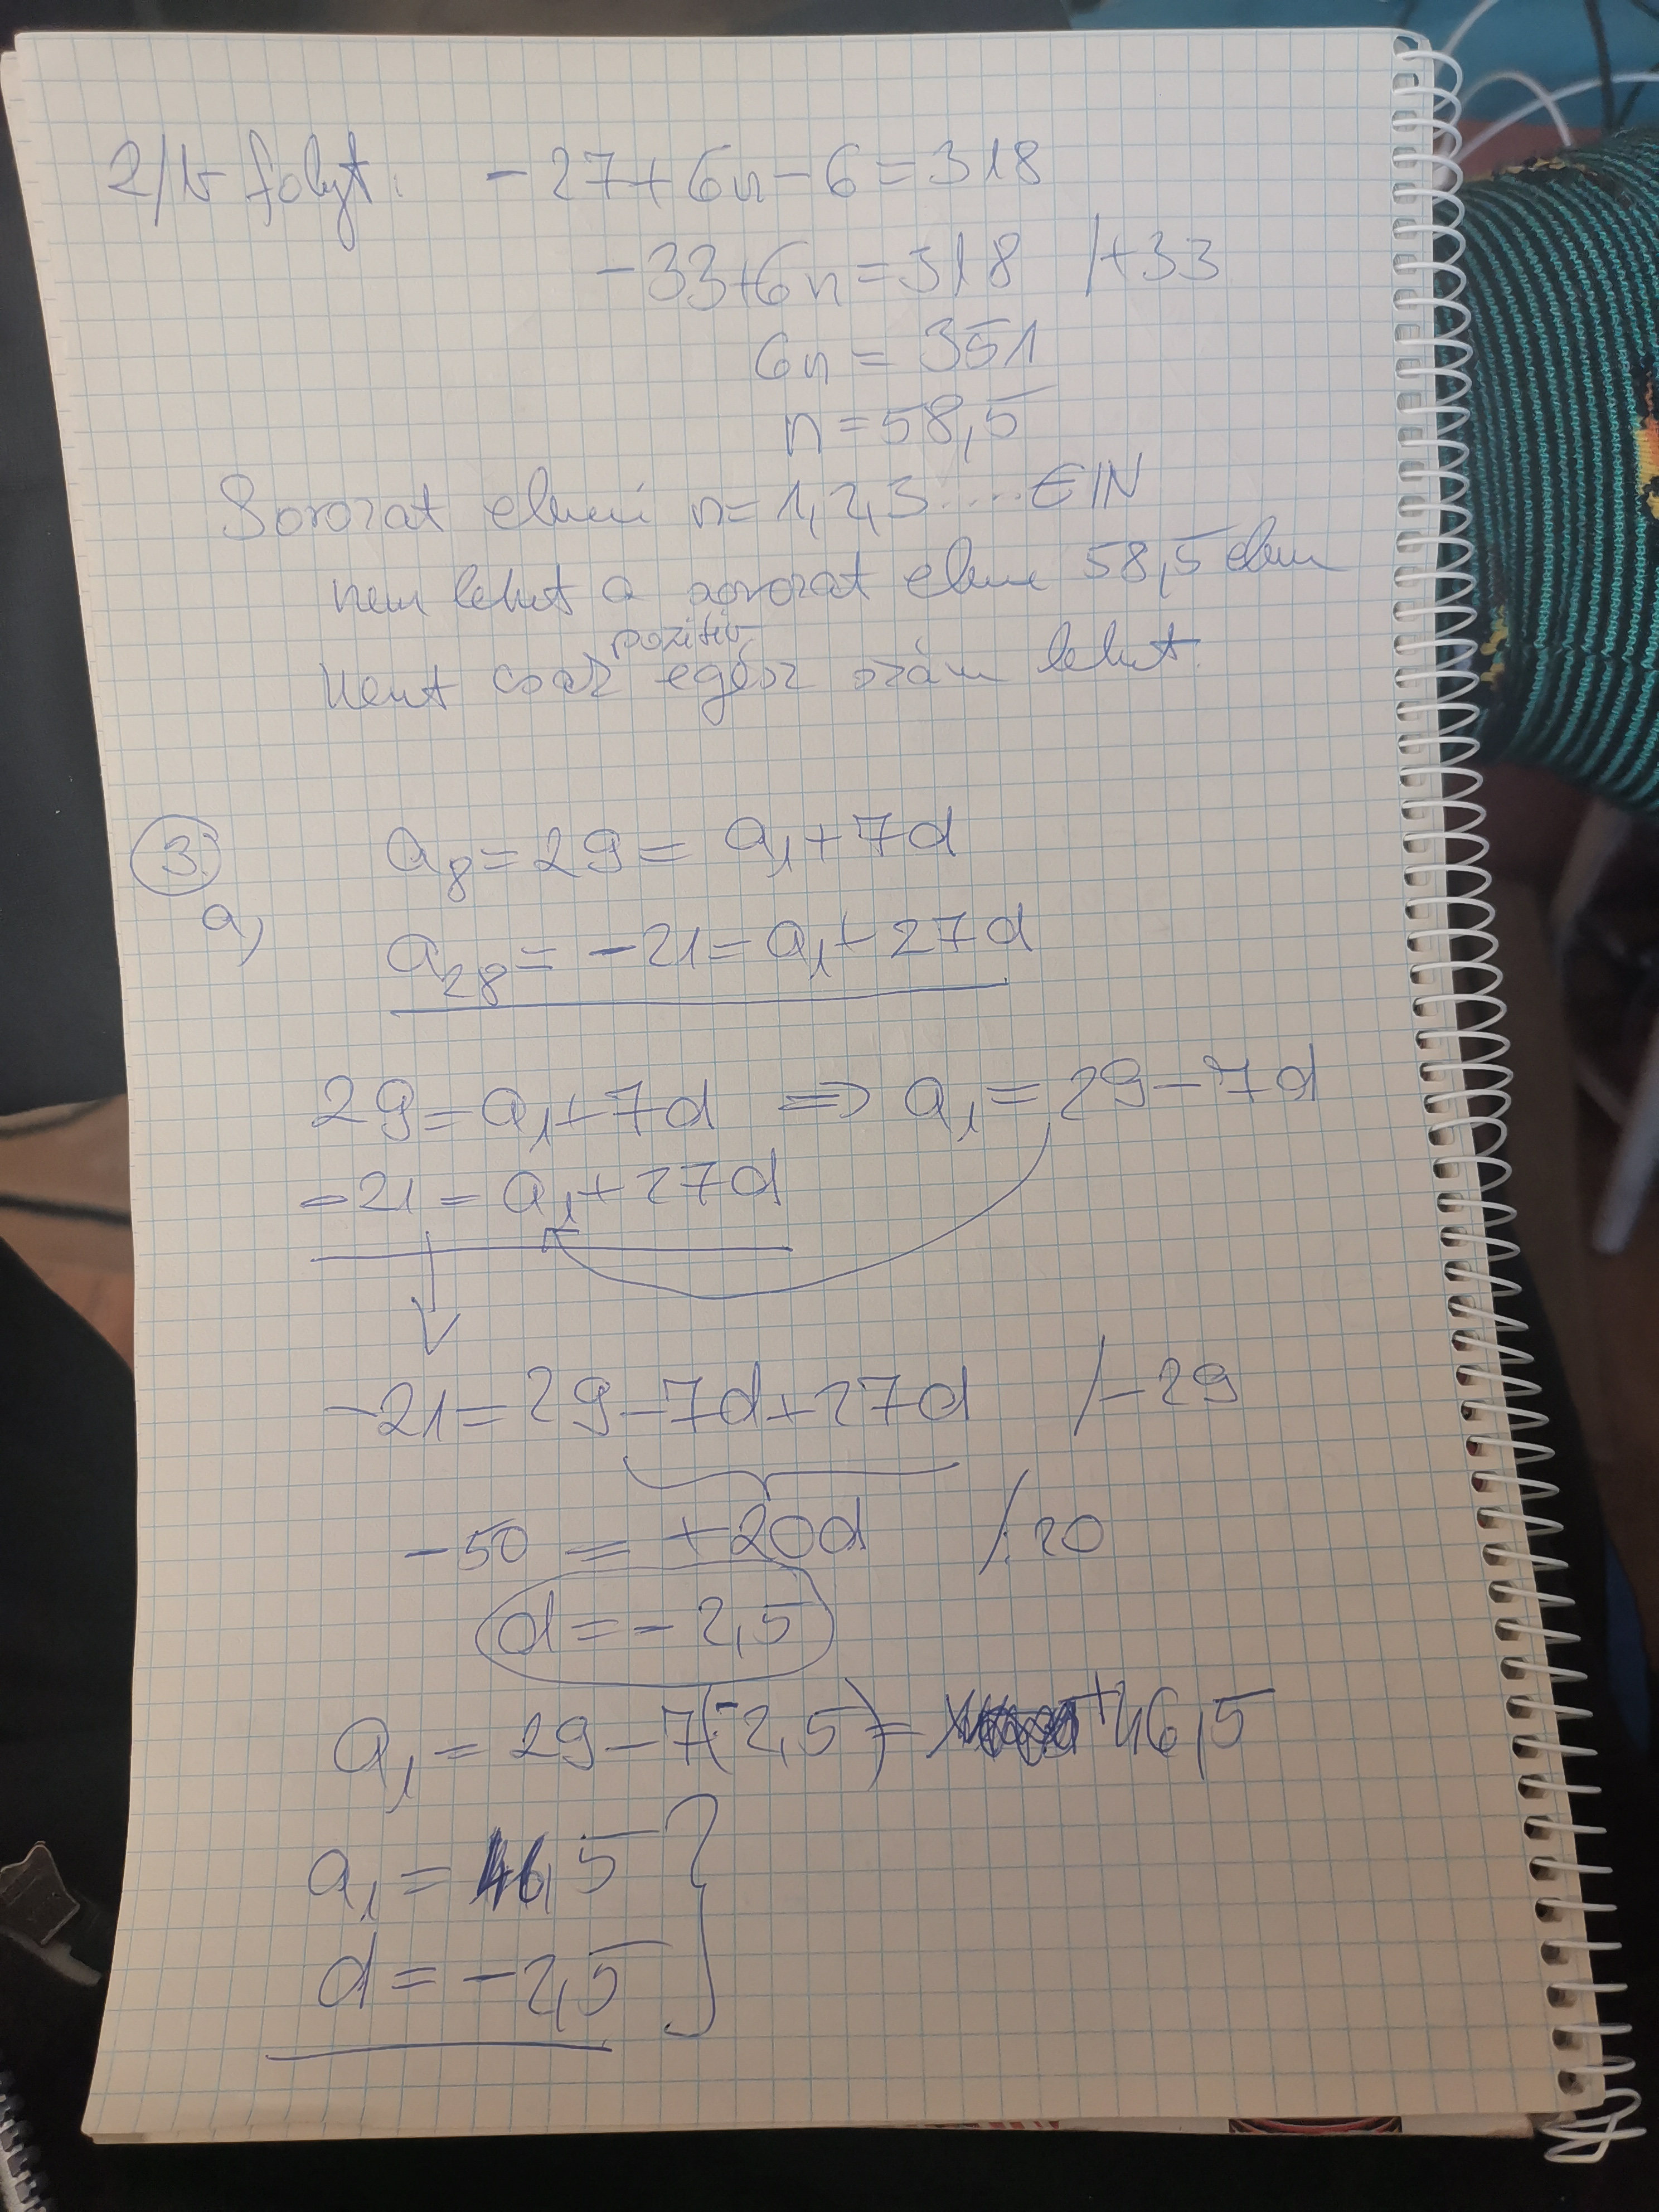 2/b folyt: -27+6n-6=318
-33+6n=318 /+33
6n = 351
n=58,5
Sorozat elemei n=1,2,3.... ∈ℕ
nem lehet a sorozat eleme 58,5 elem
pozitív
mert csak egész szám lehet.
3.
a) a₈=29= a₁+7d
a₂₈= -21= a₁+27d
29=a₁+7d ⇒ a₁=29-7d
-21=a₁+27d
-21=29-7d+27d /-29
-50 = +20d /:20
d=-2,5
a₁=29-7(-2,5)= +46,5
a₁=46,5
d=-2,5